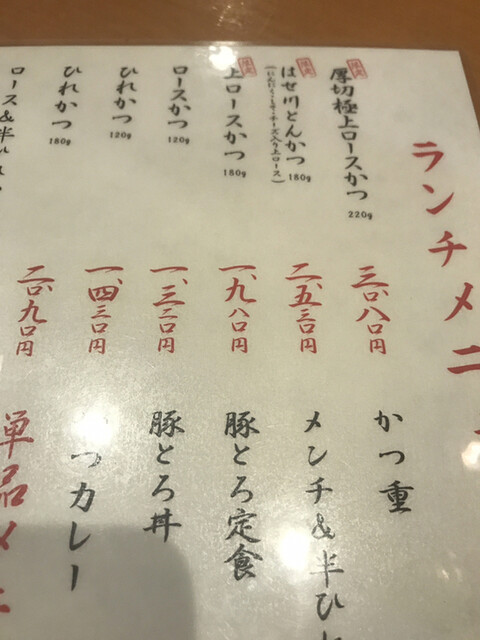 ランチメニ
限定
厚切極上ロースかつ
220g
三、〇八〇円
限定
はせ川とんかつ
180g
(にんにく&チーズ入り上ロース)
二、五三〇円
限定
上ロースかつ
180g
一、九八〇円
ロースかつ
120g
一、三二〇円
ひれかつ
120g
一、四三〇円
ひれかつ
180g
二、〇九〇円
ロース&半ひ
かつ重
メンチ&半ひ
豚とろ定食
豚とろ丼
つカレー
単品メニ